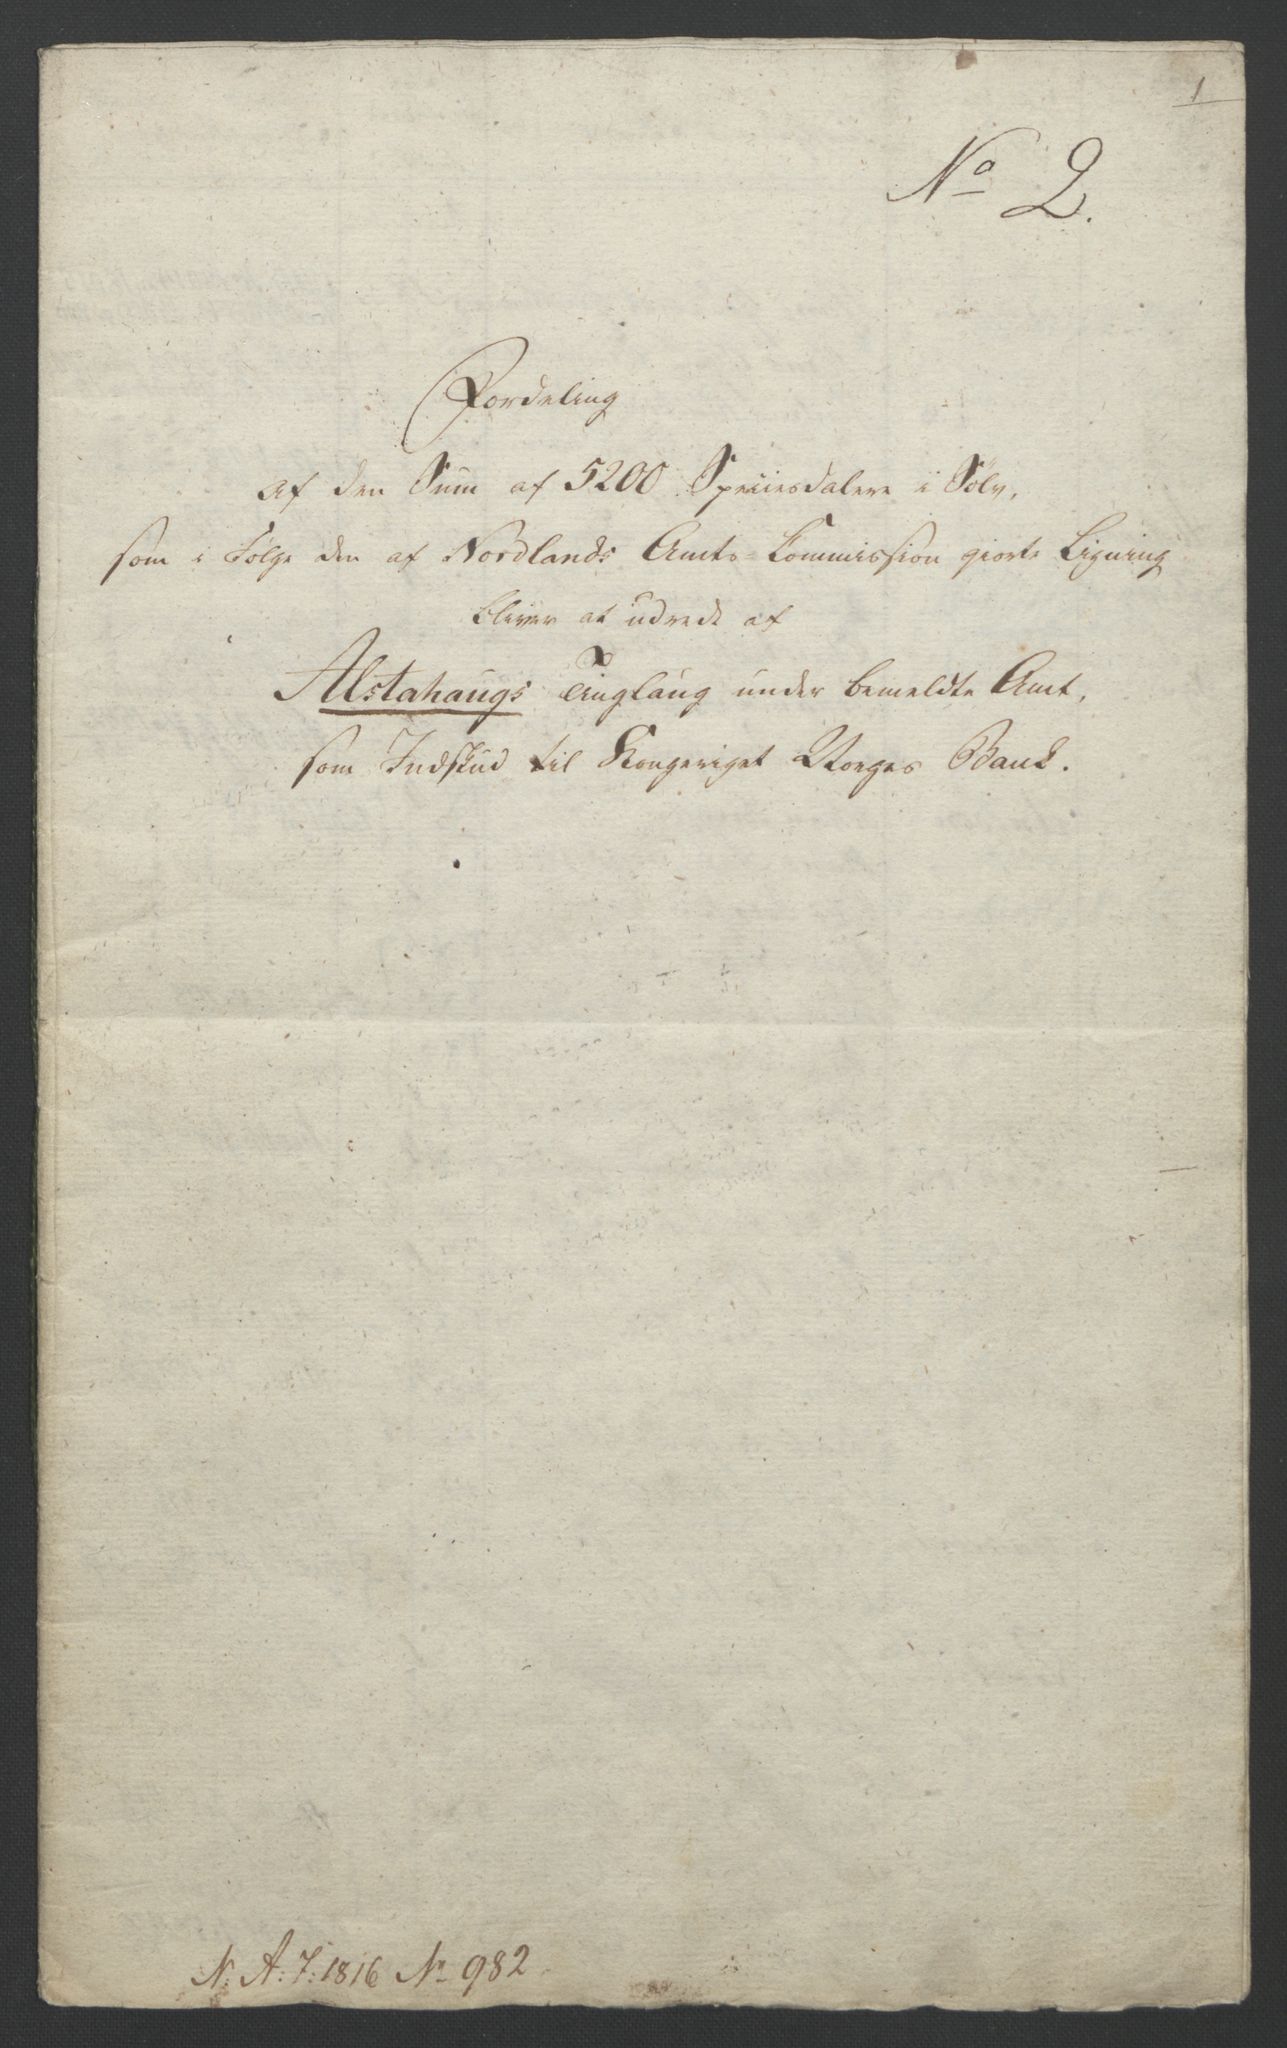 1
No 2.
Fordeling
af den Sum af 5200 Speciesdalere i Sølv,
som i Følge den af Nordlands Amts-Commission giorte Ligning
bliver at udrede af
Alstahaugs Tinglaug under bemeldte Amt,
som Indskud til Kongeriget Norges Bank.
N: A: J: 1816 No 982